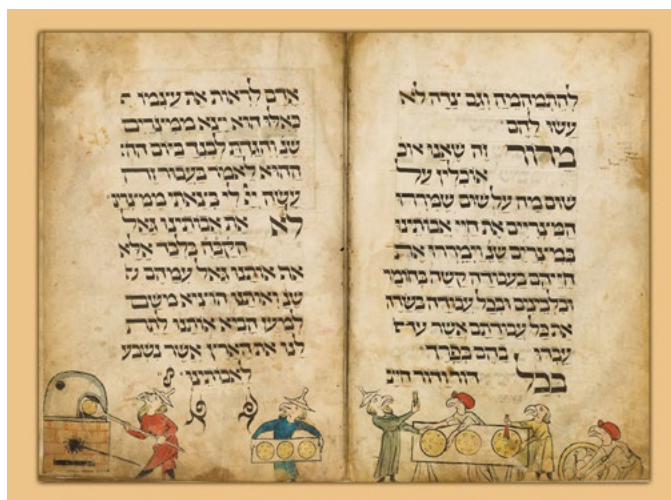 להתמהמה וגם צדה לא
עשו להם
מרור זה שאנו או
אוכלין על
שום מה על שום שמררו
המצריים את חיי אבותינו
במצרים שנ' וימררו את
חייהם בעבודה קשה בחומר
ובלבנים ובכל עבודה בשדה
את כל עבודתם אשר
עבדו בהם בפרך
בכל דור ודור חייב
אדם לראות את עצמו
כאלו הוא יצא ממצרים
שנ' והגדת לבנך ביום
ההוא לאמר בעבור זה
עשה לי בצאתי ממצרים
לא את אבותינו גאל
הקבה בלבד אלא
את אותנו גאל עמהם
שנ' ואותנו הוציא משם
למען הביא אותנו לתת
לנו את הארץ אשר נשבע
לאבותינו